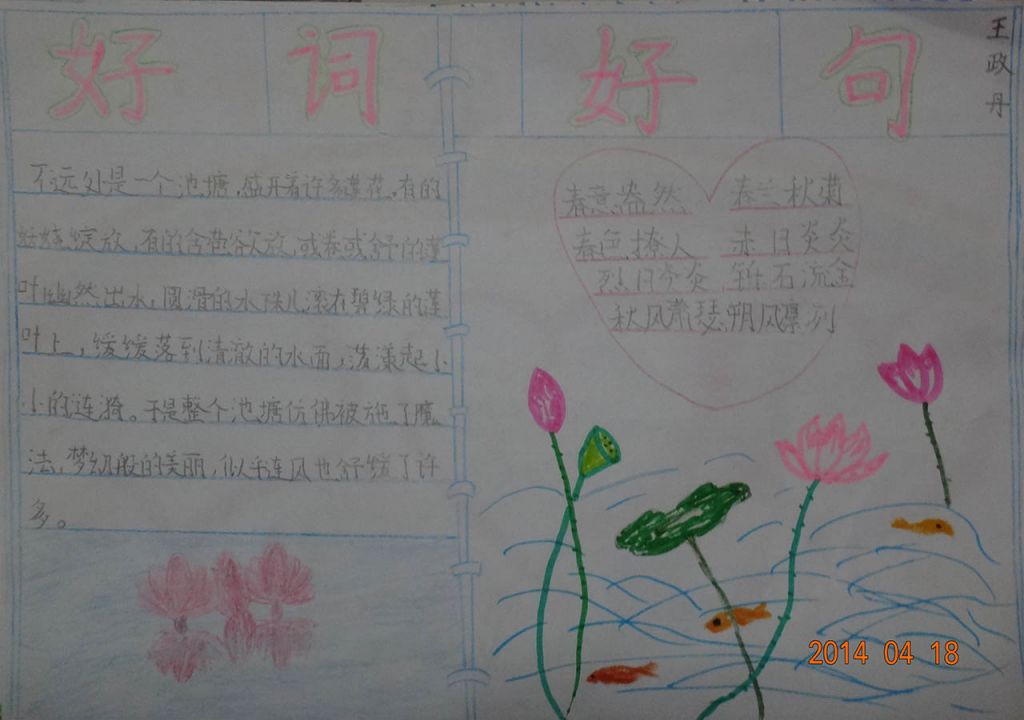 好词 好句
王政丹
不远处是一个池塘,盛开着许多莲花,有的
绽放,有的含苞欲放,或卷或舒的莲
叶幽然出水,圆滑的水珠儿滚在碧绿的莲
叶上,缓缓落到清澈的水面,荡漾起小
小的涟漪。于是整个池塘仿佛被施了魔
法,梦幻般的美丽,似乎连风也舒缓了许
多。
春意盎然 春兰秋菊
春色撩人 赤日炎炎
烈日炎炎 铄石流金
秋风萧瑟 朔风凛列
2014 04 18